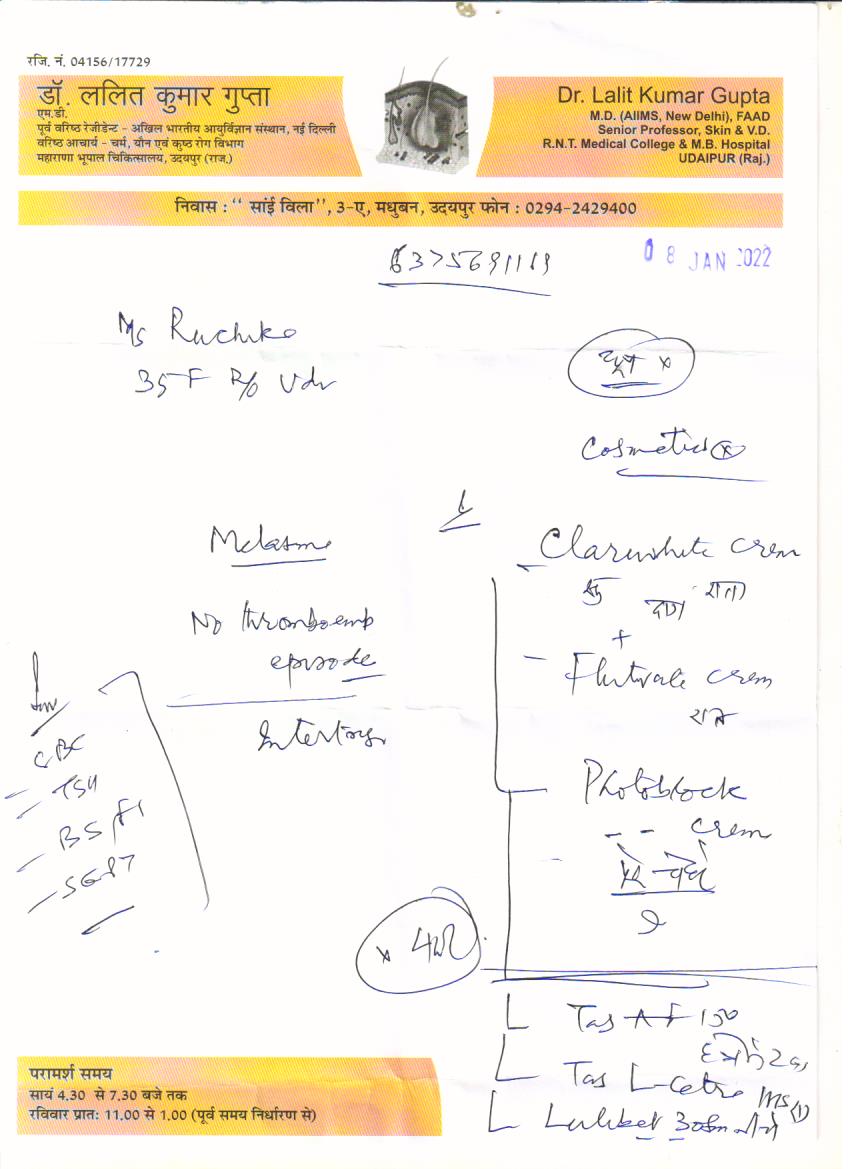 रजि. नं. 04156/17729
डॉ. ललित कुमार गुप्ता
एम.डी.
पूर्व वरिष्ठ रेजीडेन्ट - अखिल भारतीय आयुर्विज्ञान संस्थान, नई दिल्ली
वरिष्ठ आचार्य - चर्म, यौन एवं कुष्ठ रोग विभाग
महाराणा भूपाल चिकित्सालय, उदयपुर (राज.)
Dr. Lalit Kumar Gupta
M.D. (AIIMS, New Delhi), FAAD
Senior Professor, Skin & V.D.
R.N.T. Medical College & M.B. Hospital
UDAIPUR (Raj.)
निवास : “ सांई विला”, 3-ए, मधुबन, उदयपुर फोन : 0294-2429400
6375691119
08 JAN 2022
Ms Ruchika
35 F R/o Udr
Cosmetics x
Melasma
No thromboemb
episode
Inv
CBC
TSH
SGPT
Clarewhite crem
+
Flutivate crem
रात
Photoblock
-- crem
Tas AF 150
Tas L-Cetre
परामर्श समय
सायं 4.30 से 7.30 बजे तक
रविवार प्रात: 11.00 से 1.00 (पूर्व समय निर्धारण से)